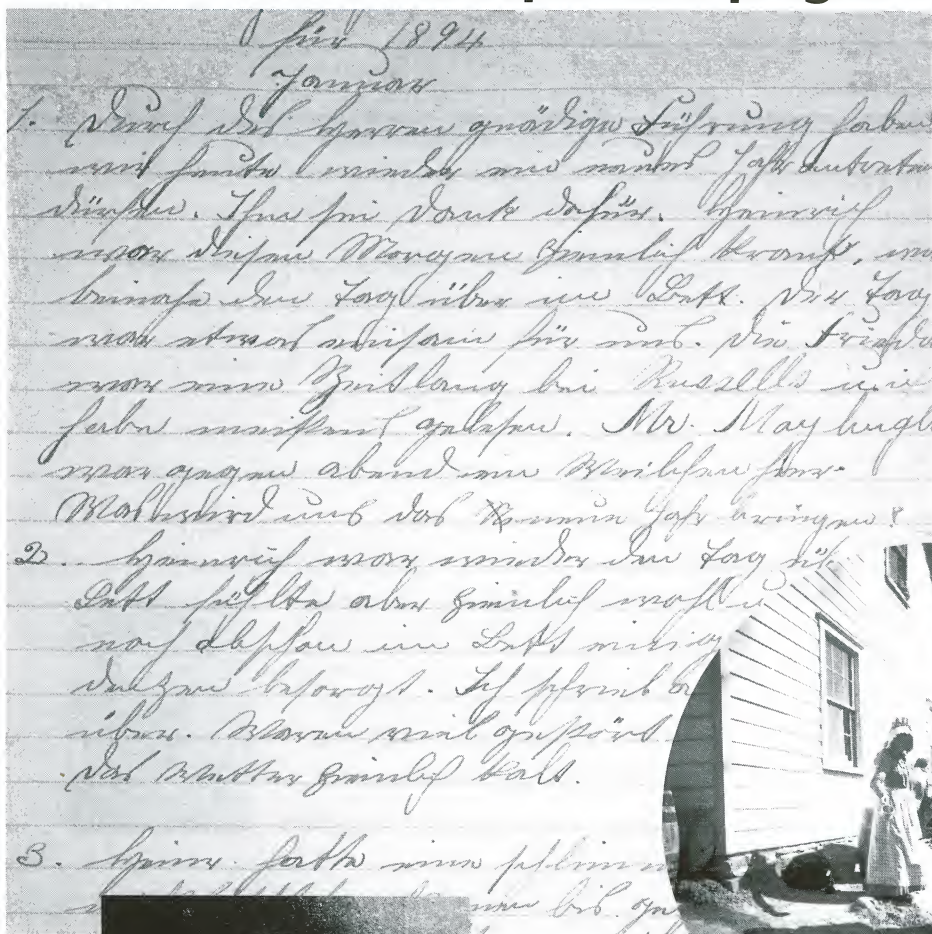 für 1894
Januar
1. Durch des Herren gnädige Führung haben
wir heute wieder ein neues Jahr antreten
dürfen. Ihm sei Dank dafür. Heinrich
war diesen Morgen ziemlich krank, war
beinahe den Tag über im Bett. Der Tag
war etwas einsam für uns. Die Frieda
war eine Zeitlang bei Russells
habe meistens gelesen. Mr. May
war gegen abend ein Weilchen hier.
Was wird uns das neue Jahr bringen?
2. Heinrich war wieder den Tag üb
Bett fühlte aber ziemlich wohl u
noch obschon im Bett einig
besorgt. Ich schrieb
über. Waren viel gestört
das Wetter ziemlich kalt.
3. Heinr. hatte eine schlimm
bis